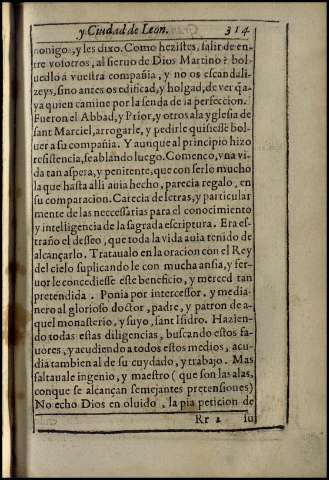 y Ciudad de Leon. 314
nonigo, y les dixo. Como hezistes, salir de en-
tre vosotros, al sieruo de Dios Martino? bol-
uedlo a vuestra compañia, y no os escandali-
zeys, sino antes os edificad, y holgad, de ver q̃ a-
ya quien camine por la senda de la perfeccion.
Fueron el Abbad, y Prior, y otros a la yglesia de
sant Marciel, a rrogarle, y pedirle quisiesse bol-
uer a su compañia. Y aunque al principio hizo
resistencia, se ablando luego. Comenco, vna vi-
da tan aspera, y penitente, que con serlo mucho
la que hasta alli auia hecho, parecia regalo, en
su comparacion. Carecia de letras, y particular
mente de las necessarias para el conocimiento
y intelligencia de la sagrada escriptura. Era es-
traño el desseo, que toda la vida auia tenido de
alcançarlo. Trataualo en la oracion con el Rey
del cielo suplicando le con mucha ansia, y fer-
uor le concediesse este beneficio, y merced tan
pretendida. Ponia por intercessor, y media-
nero al glorioso doctor, padre, y patron de a-
quel monasterio, y suyo, sant Isidro. Hazien-
do todas estas diligencias, buscando estos fa-
uores, y acudiendo a todos estos medios, acu-
dia tambien al de su cuydado, y trabajo. Mas
faltauale ingenio, y maestro (que son las alas,
con que se alcançan semejantes pretensiones)
No echo Dios en oluido, la pia peticion de
Rr 2 su